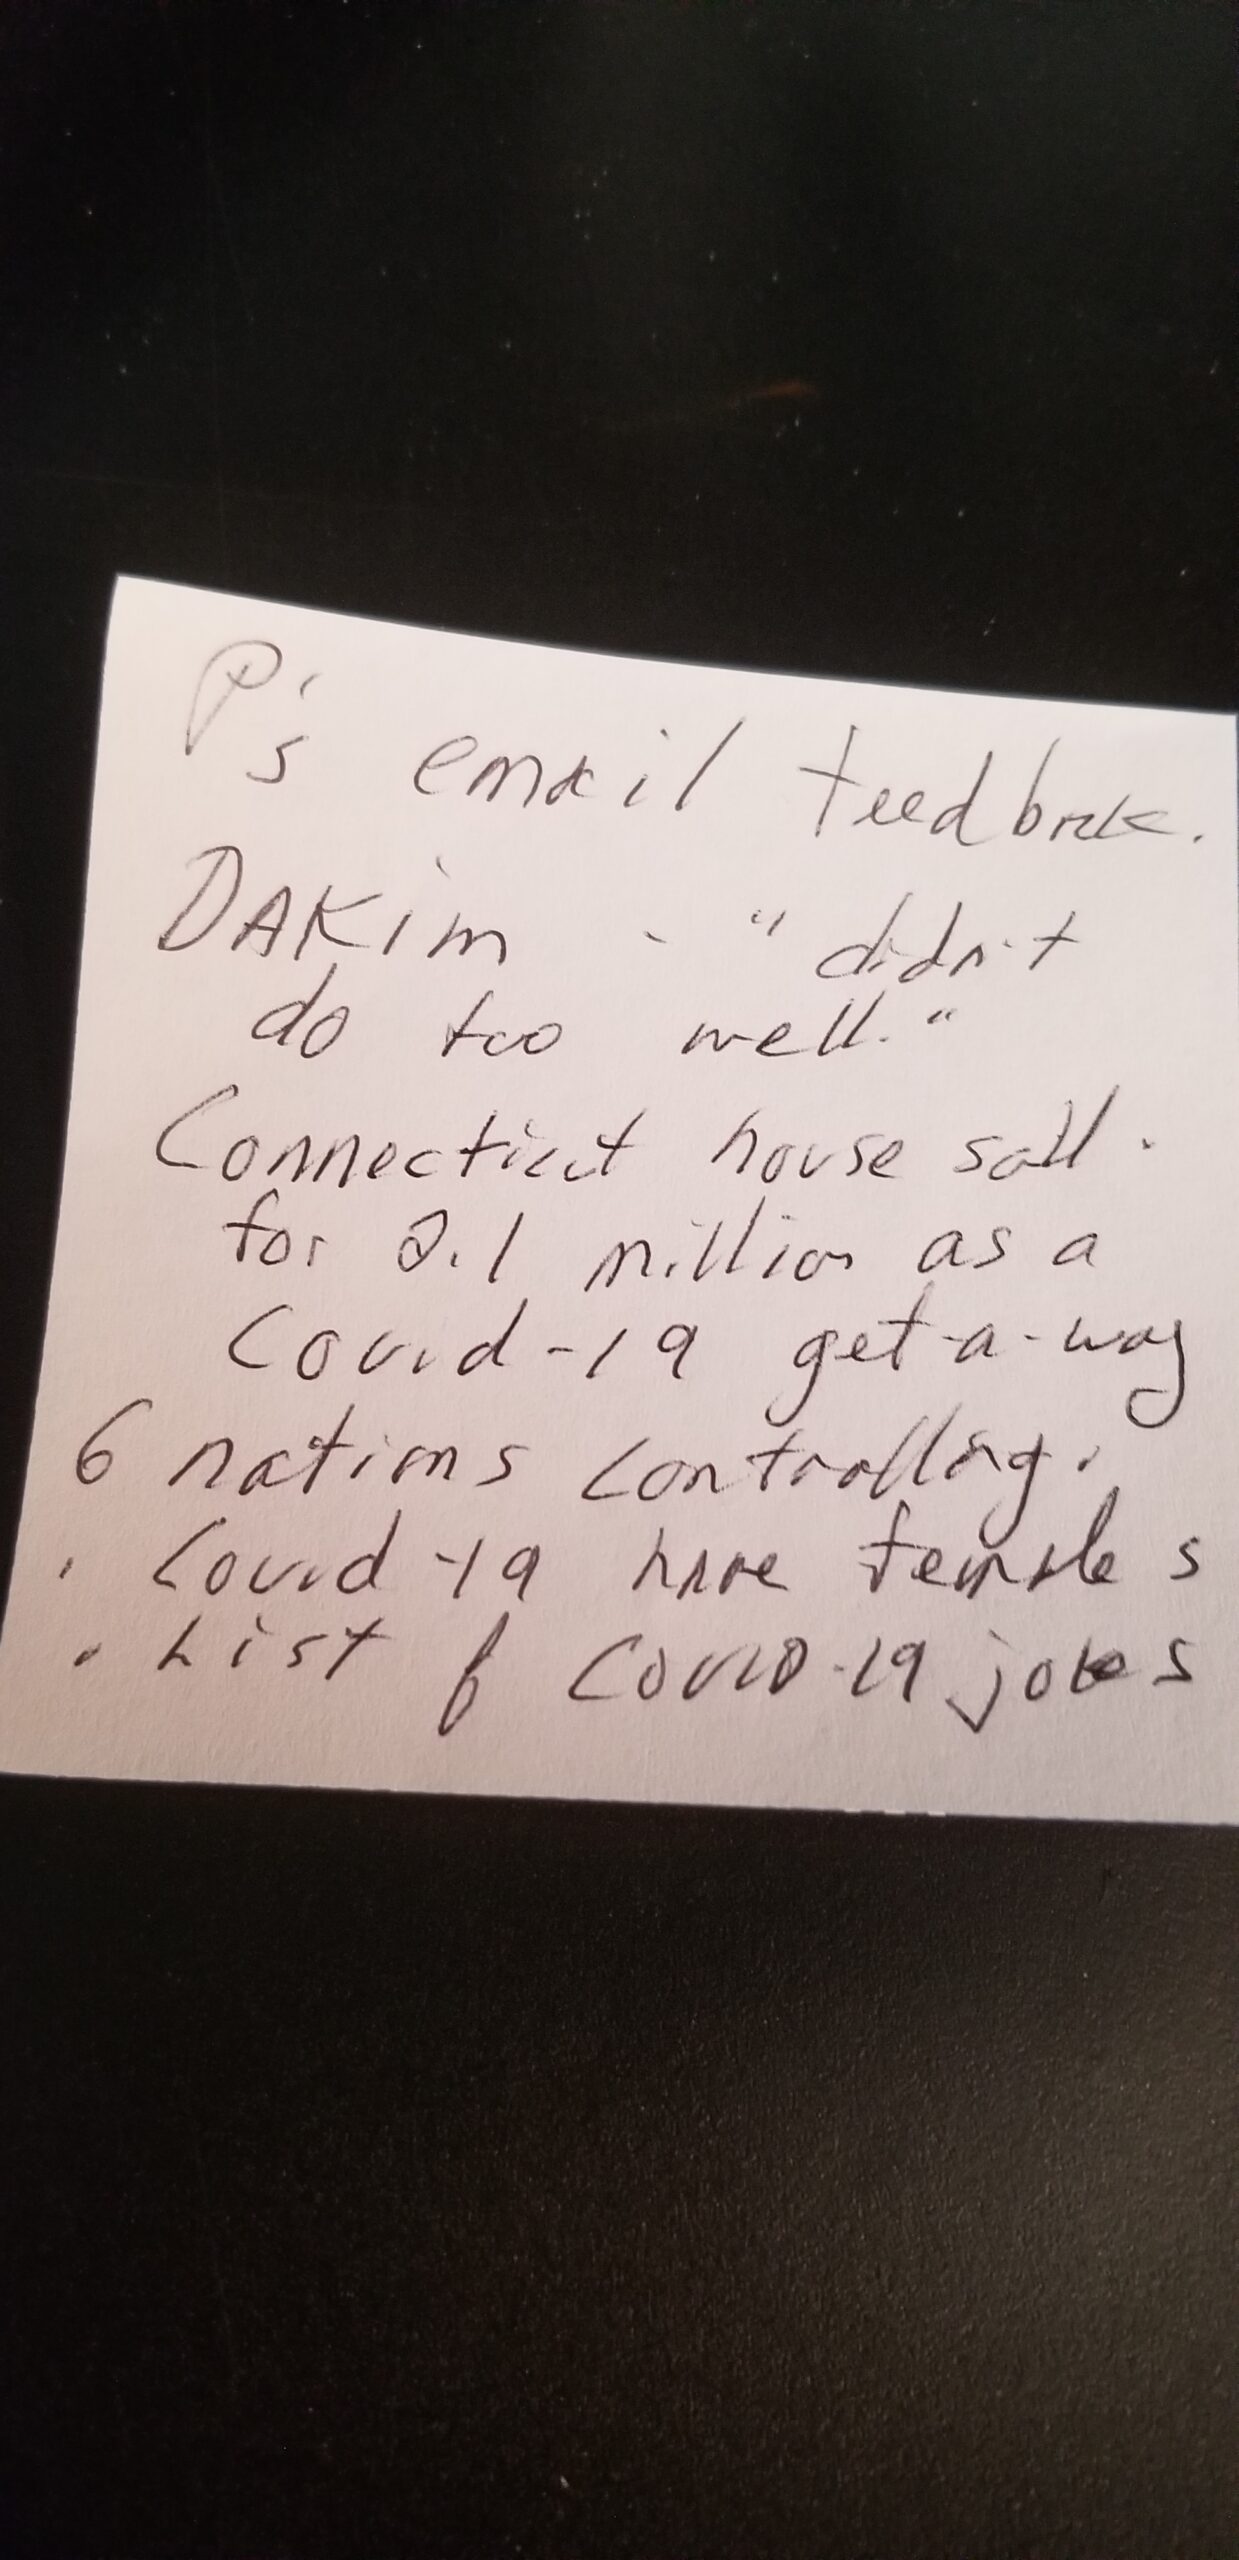 P's email feedback.
DAKim - "didn't
do too well."
Connecticut house sold
for 2.1 million as a
Covid-19 get-a-way
6 nations controlling
. Covid-19 have female s
. List of COVID-19 jokes